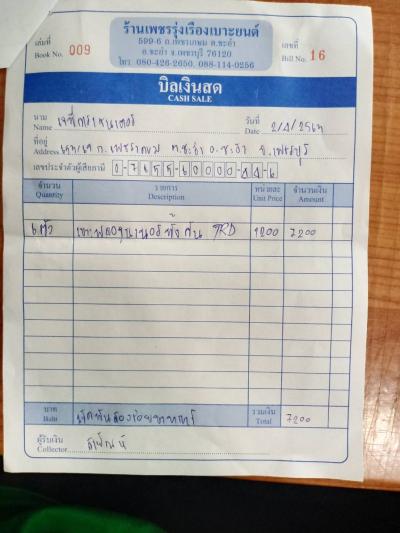 ร้านเพชรรุ่งเรืองเบาะยนต์
599-6 ถ.เพชรเกษม ต.ชะอำ
อ.ชะอำ จ.เพชรบุรี 76120
โทร. 080-426-2650, 088-114-0256
เล่มที่
Book No. 009
เลขที่
Bill No. 16
บิลเงินสด
CASH SALE
นาม
Name
วันที่
Date 2/4/256
ที่อยู่
Address ถ. เพชรเกษม ต.ชะอำ อ.ชะอำ จ.เพชรบุรี
เลขประจำตัวผู้เสียภาษี
จำนวน รายการ หน่วยละ จำนวนเงิน
Quantity Description Unit Price Amount
6 ตัว TRD 1200 7200
บาท เจ็ดพันสองร้อยบาท รวมเงิน
Baht Total 7200
ผู้รับเงิน
Collector